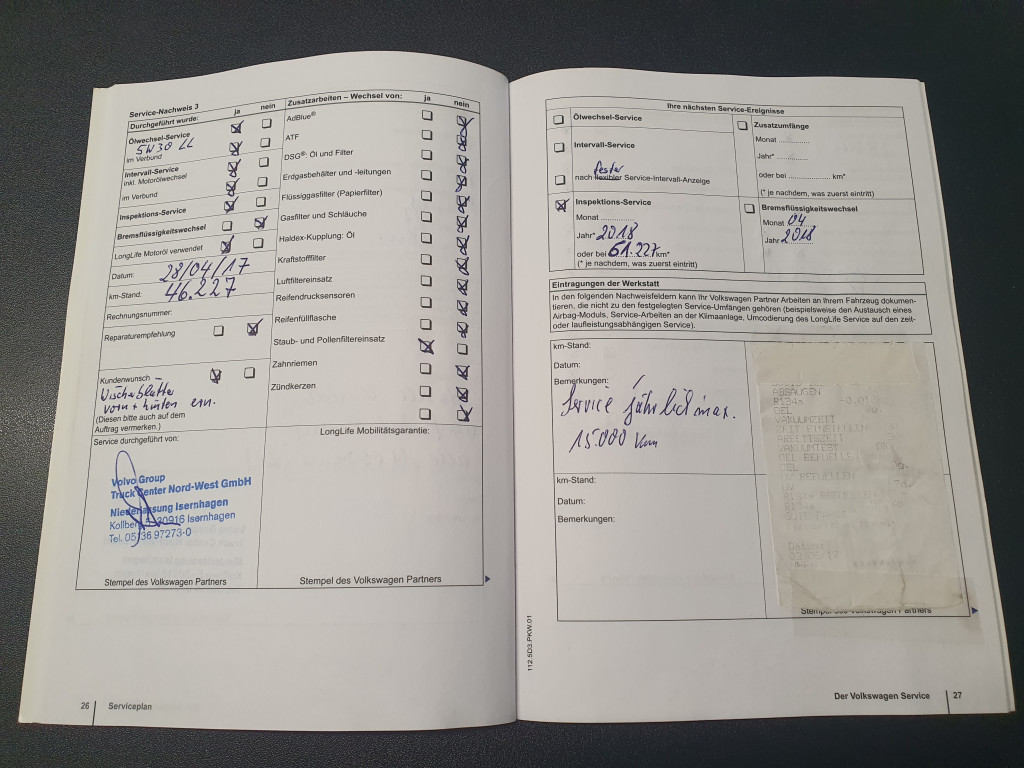 Service-Nachweis 3
Durchgeführt wurde: ja nein
Ölwechsel-Service
5W30 LL
im Verbund
Intervall-Service
inkl. Motorölwechsel
im Verbund
Inspektions-Service
Bremsflüssigkeitswechsel
LongLife Motoröl verwendet
Datum: 28/04/17
km-Stand: 46.227
Rechnungsnummer:
Reparaturempfehlung
Kundenwunsch –
Wischerblätter
vorn + hinten ern.
(Diesen bitte auch auf dem
Auftrag vermerken.)
Service durchgeführt von:
Volvo Group
Truck Center Nord-West GmbH
Niederlassung Isernhagen
30916 Isernhagen
Tel. 05136 97273-0
Stempel des Volkswagen Partners
Zusatzarbeiten – Wechsel von: ja nein
AdBlue®
ATF
DSG®: Öl und Filter
Erdgasbehälter und -leitungen
Flüssiggasfilter (Papierfilter)
Gasfilter und Schläuche
Haldex-Kupplung: Öl
Kraftstofffilter
Luftfiltereinsatz
Reifendrucksensoren
Reifenfüllflasche
Staub- und Pollenfiltereinsatz
Zahnriemen
Zündkerzen
LongLife Mobilitätsgarantie:
Stempel des Volkswagen Partners
26 Serviceplan
Ihre nächsten Service-Ereignisse
Ölwechsel-Service
Intervall-Service
fester
nach flexibler Service-Intervall-Anzeige
Inspektions-Service
Monat ..............
Jahr* 2018
oder bei 61.227 km*
(* je nachdem, was zuerst eintritt)
Zusatzumfänge
Monat .............
Jahr* .............
oder bei .................. km*
(* je nachdem, was zuerst eintritt)
Bremsflüssigkeitswechsel
Monat 04
Jahr 2018
Eintragungen der Werkstatt
In den folgenden Nachweisfeldern kann Ihr Volkswagen Partner Arbeiten an Ihrem Fahrzeug dokumen-
tieren, die nicht zu den festgelegten Service-Umfängen gehören (beispielsweise den Austausch eines
Airbag-Moduls, Service-Arbeiten an der Klimaanlage, Umcodierung des LongLife Service auf den zeit-
oder laufleistungsabhängigen Service).
km-Stand:
Datum:
Bemerkungen:
Service jährlich max.
15.000 km
km-Stand:
Datum:
Bemerkungen:
ABSAUGEN
R134a -0.010
OEL
VAKUUMZEIT
ZEIT EINSTELLEN
ARBEITSZEIT
VAKUUMTEST
OEL BEFUELLEN
OEL
UV BEFUELLEN
UV
R134a
Datum:
Stempel des Volkswagen Partners
112.5D3.PKW.01
Der Volkswagen Service 27